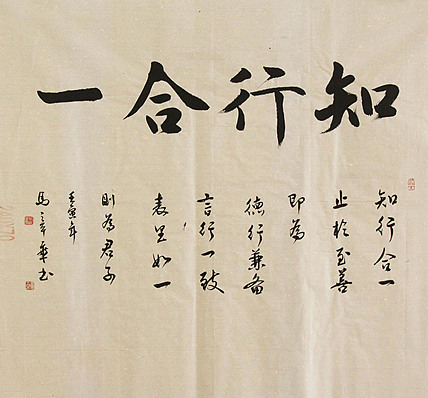 知行合一
知行合一
止於至善
即為
德行兼備
言行一致
表里如一
則為君子
壬寅年
馬 華书